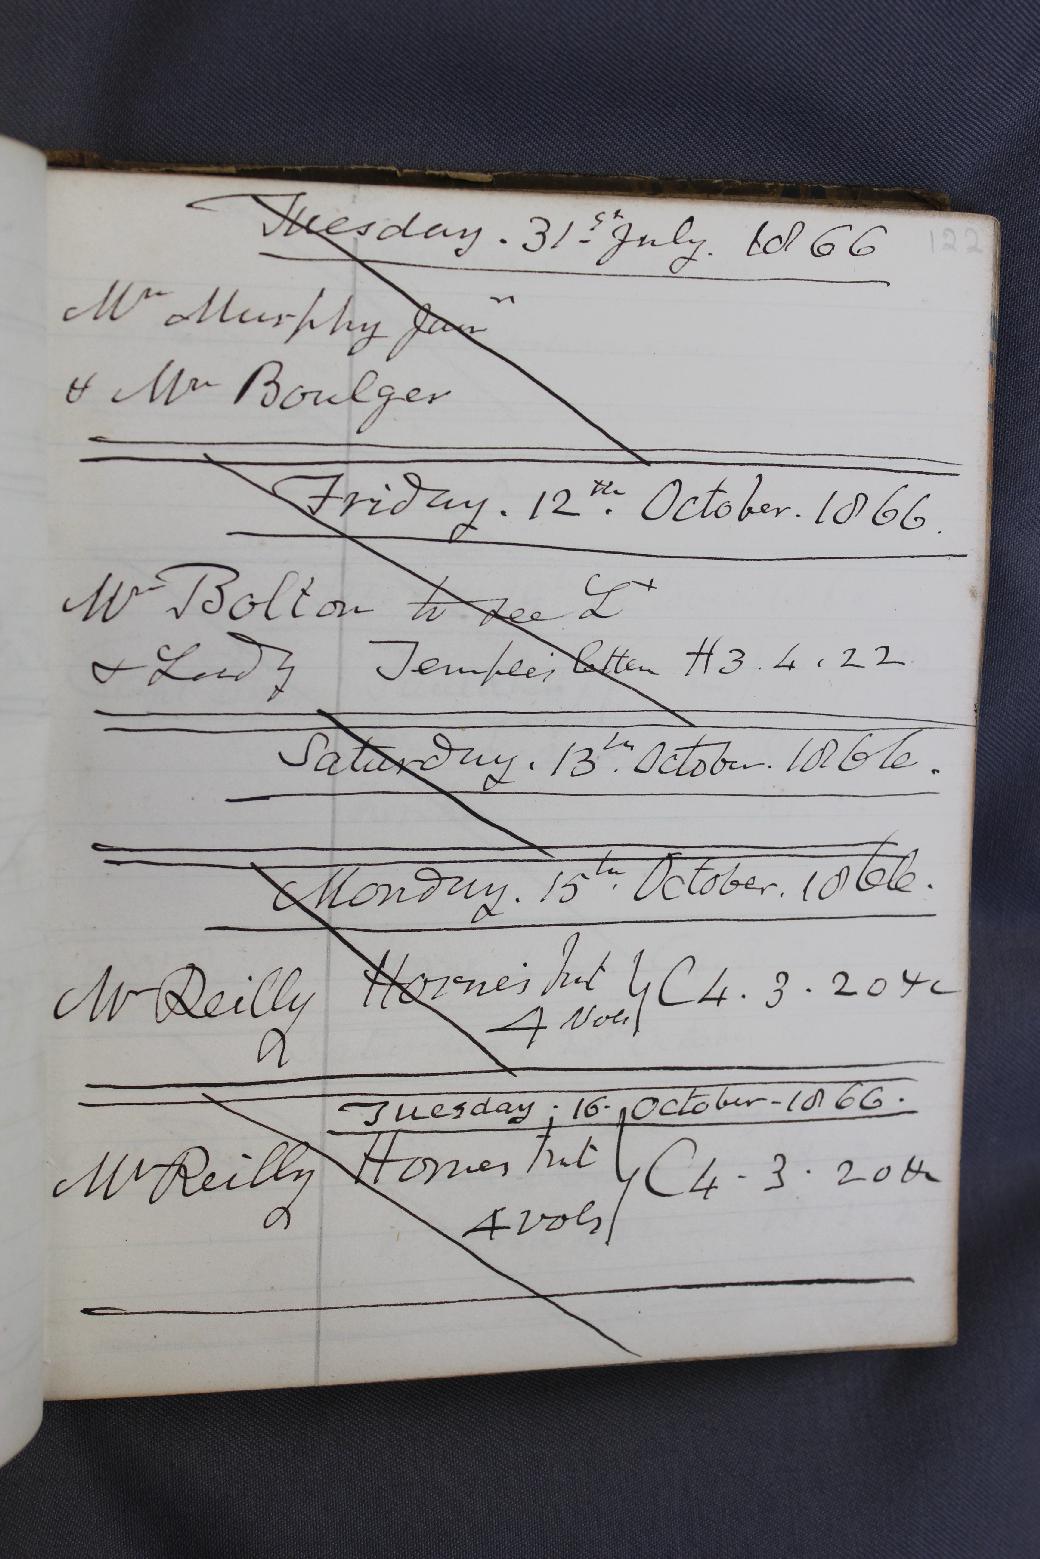 122
Tuesday. 31st July. 1866
Mr Murphy Junr
& Mr Boulger
Friday. 12th. October. 1866.
Mr Bolton to see Lt
& Lady Temple's letter H3.4.22
Saturday. 13th. October. 1866.
Monday. 15th. October. 1866.
Mr Reilly Hornes Int } C4.3.20 &c
4 Vols
Tuesday. 16. October-1866.
Mr Reilly Hornes Int } C4.3.20 &c
4 vols